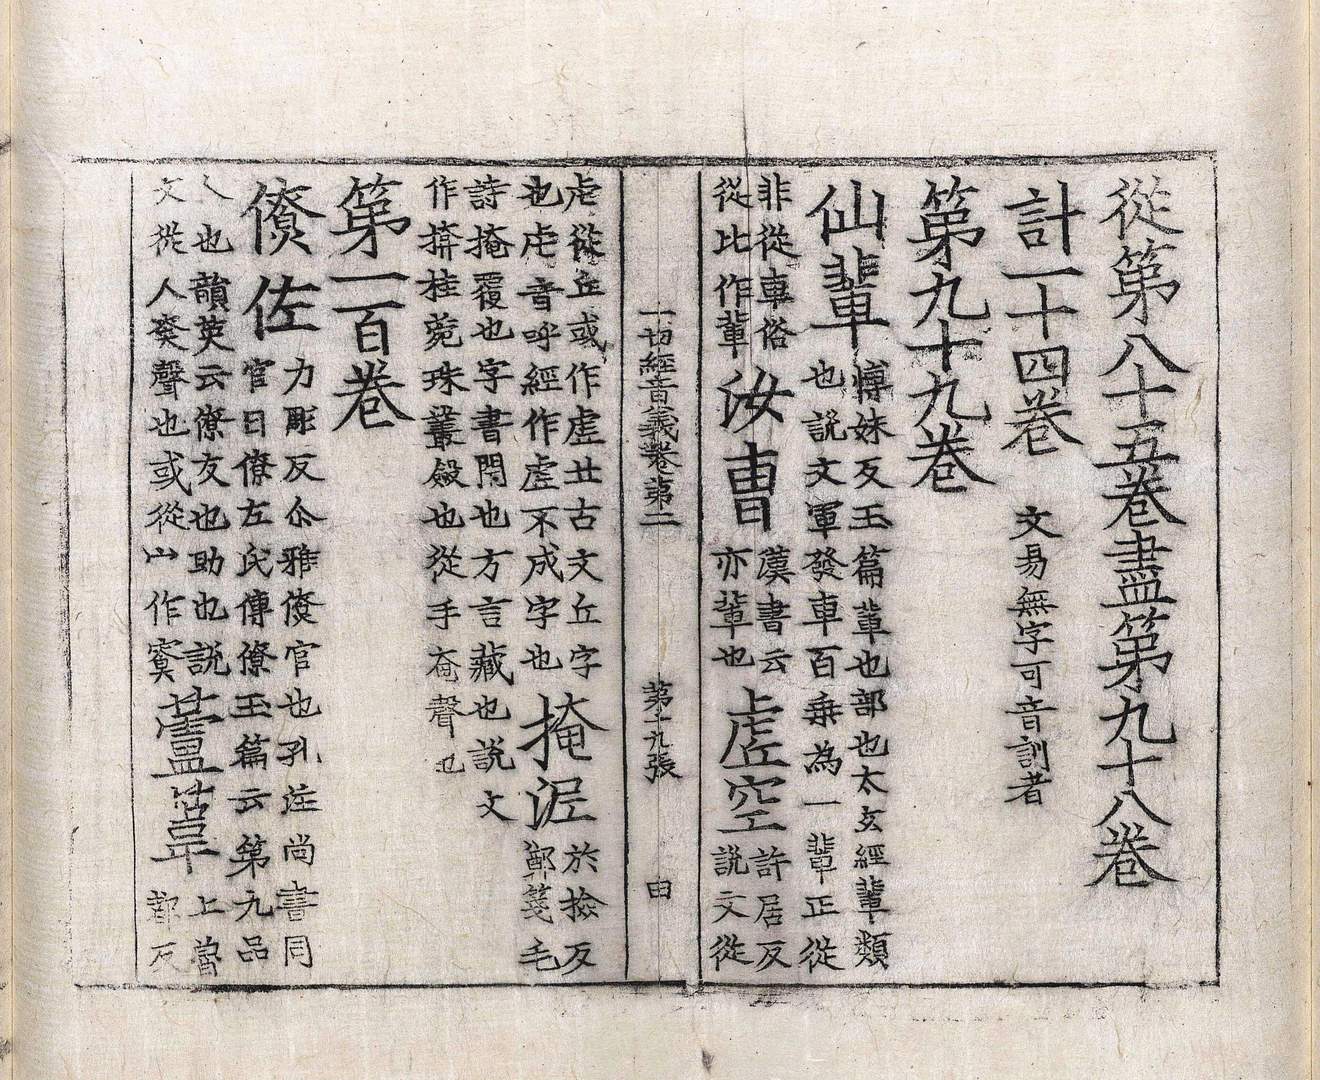 從第八十五卷盡第九十八卷
計一十四卷 文易無字可音訓者
第九十九卷
仙輩 愽妹反玉篇輩也部也太玄經輩類
也說文軍發車百乗為一輩正從
非從車俗
從比作軰 汝曺 漢書云
亦輩也 虛空 許居反
說文從
一切經音義卷第二 第十九張 由
虍從丘或作虗丠古文丘字
也虍音呼經作虛不成字也 掩泥 於撿反
鄭箋毛
詩掩覆也字書閇也方言藏也說文
作揜桂菀珠叢㱃也從手奄聲也
第一百卷
僚佐 力彫反尒雅僚官也孔注尚書同
官曰僚左氏傳僚玉篇云第九品
也韻英云僚友也助也說
文從人尞聲也或從山作寮 薹 上曾
鄧反